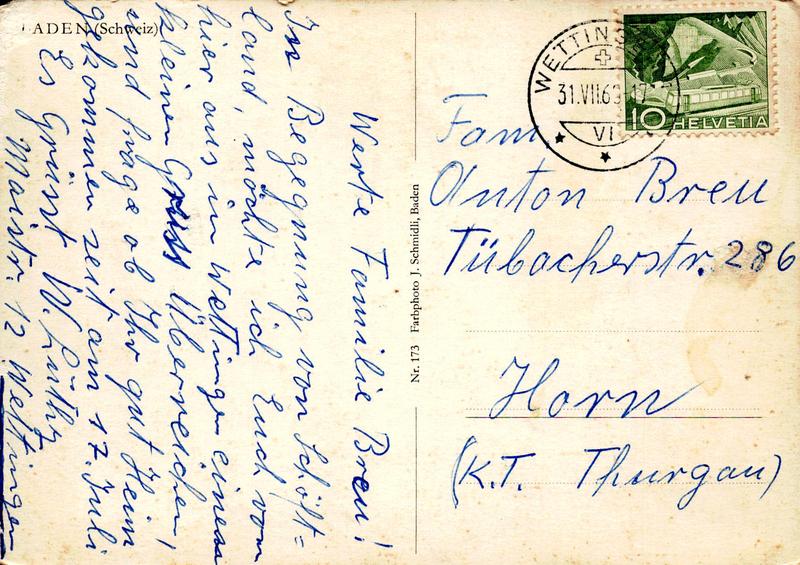 BADEN (Schweiz)
Werte Familie Breu!
Begegnung von Schöft=
land, möchte ich Euch von
hier aus in Wettingen einen
kleinen Gruss Überreichen,
und frage ob Ihr gut Heim
gekommen seit am 17. Juli
Es Grüsst W. Lüthy
12 Wettingen
Nr. 173 Farbphoto J. Schmidli, Baden
WETTINGEN
31.VII.69-17
VI
10 HELVETIA
Fam
Anton Breu
Tübacherstr. 286
Horn
(K.T. Thurgau)